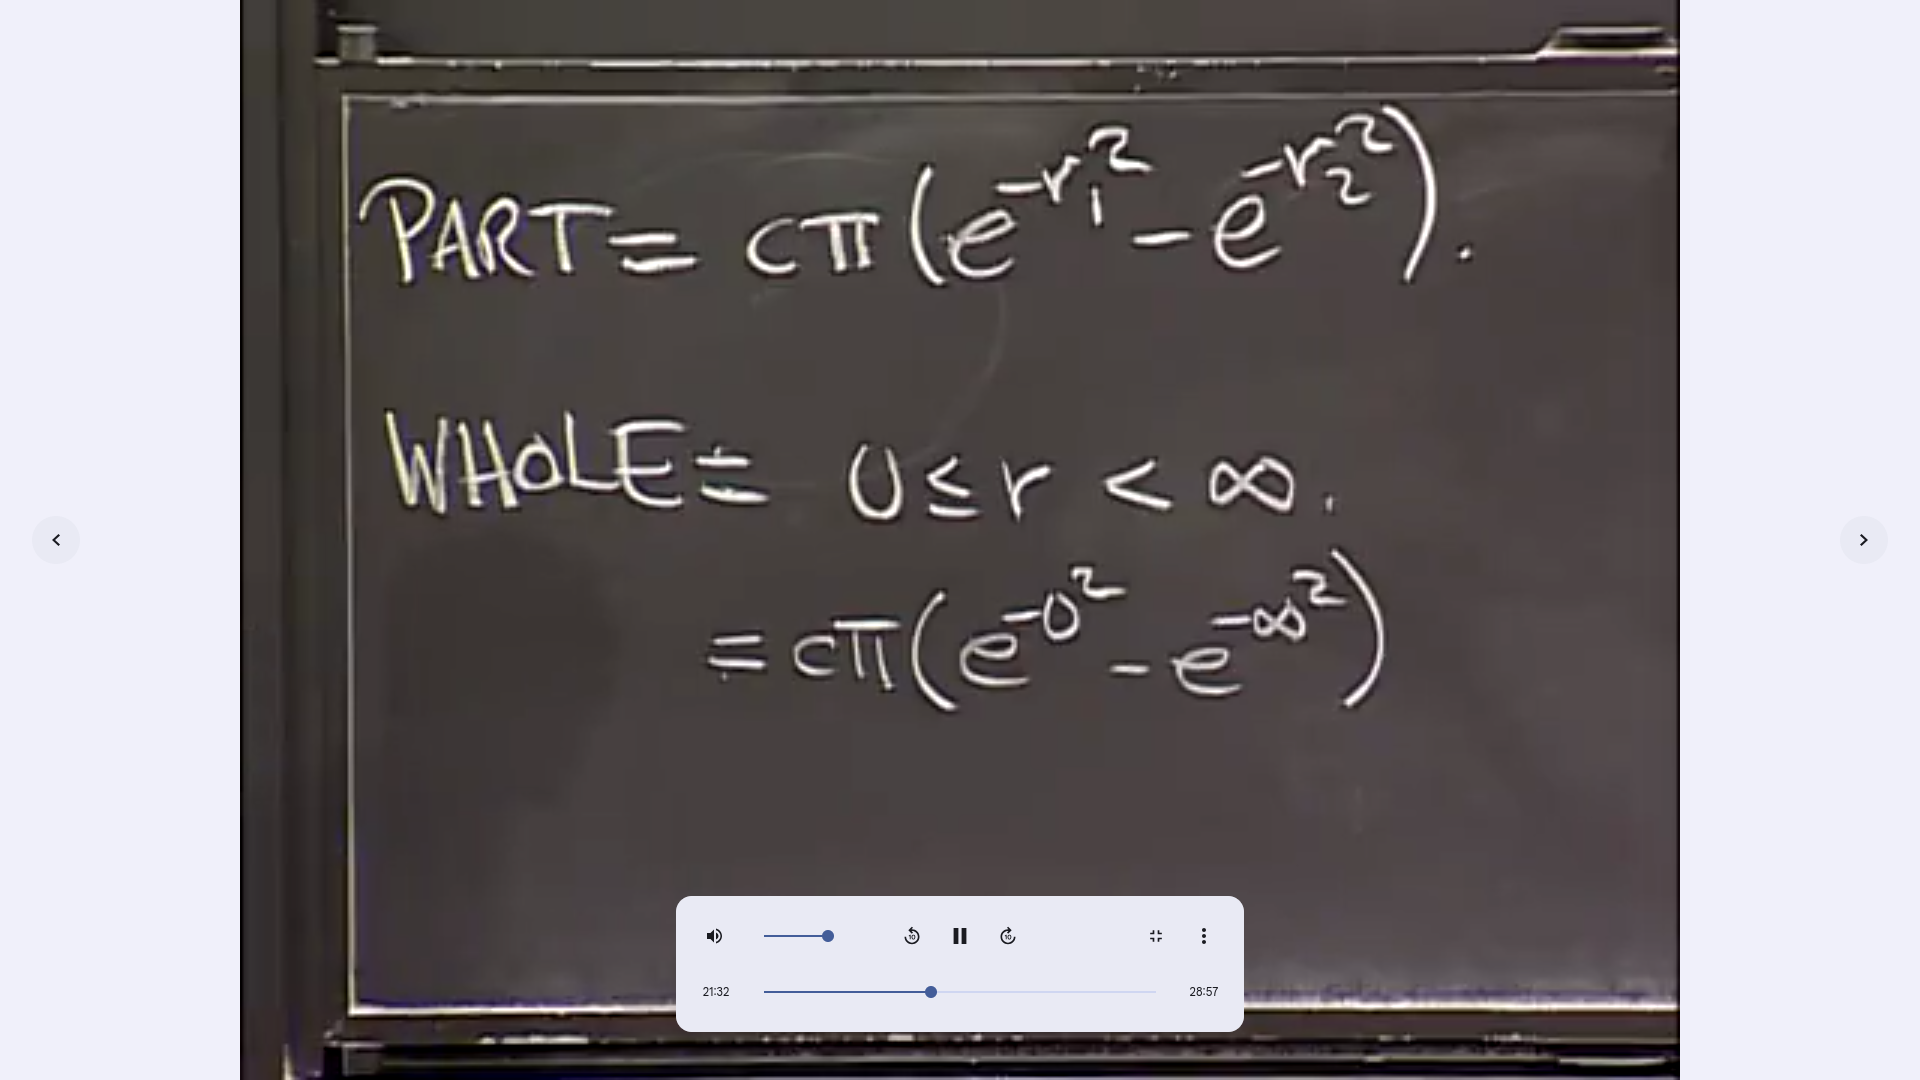 PART = cπ(e^{-r_1^2} - e^{-r_2^2}).
WHOLE = 0 ≤ r < ∞.
= cπ(e^{-0^2} - e^{-∞^2})
21:32
28:57